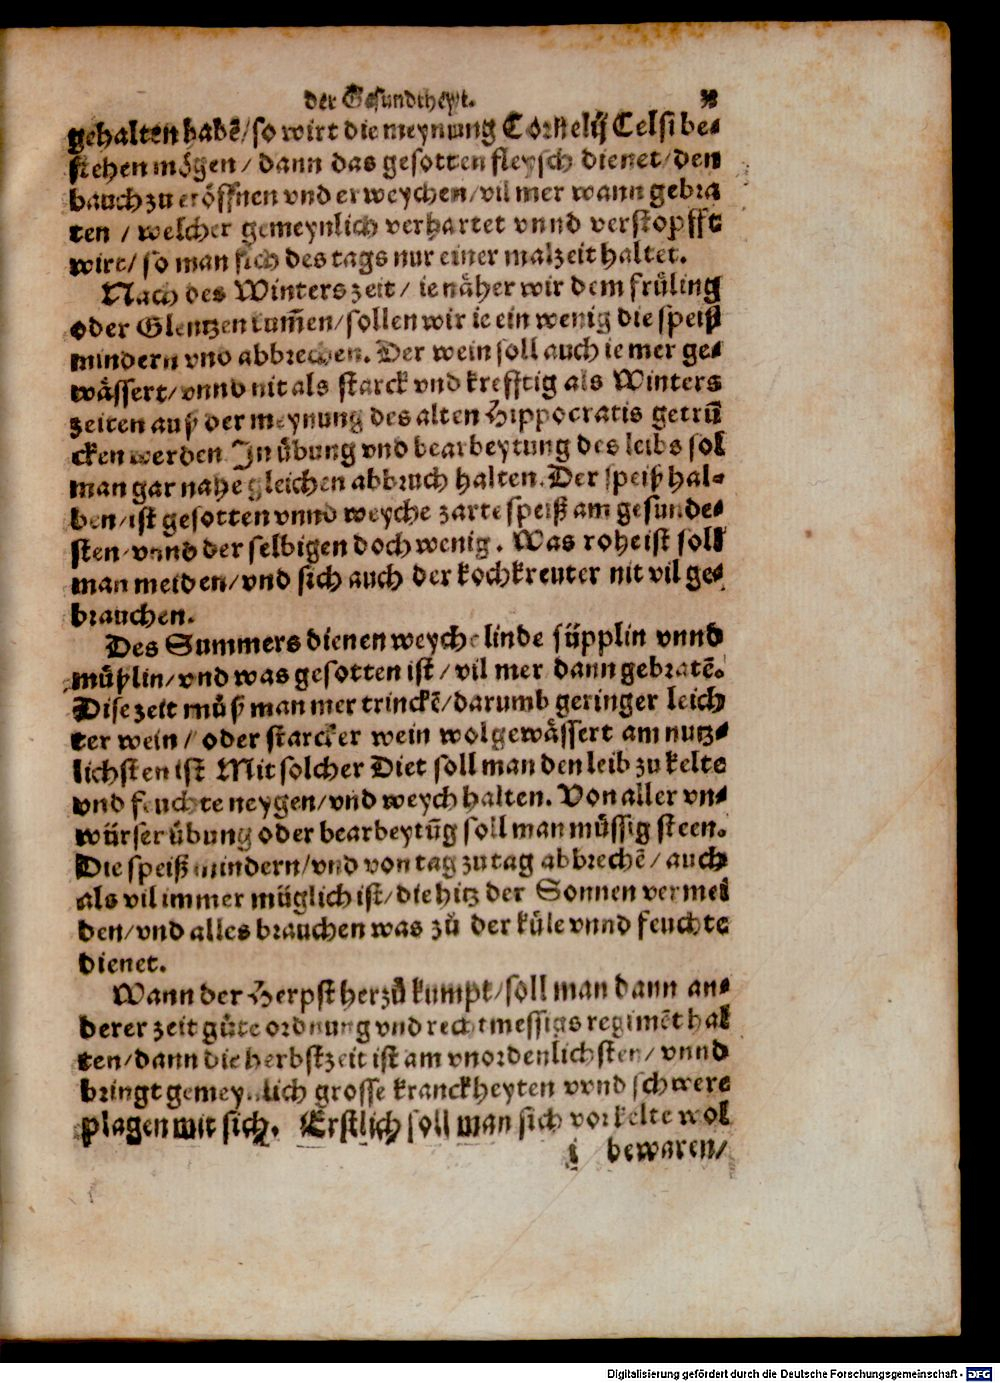 der Gesundtheyt.
gehalten habē/so wirt die meynung Cornelij Celsi be⸗
stehen mögen/ dann das gesotten fleysch dienet/den
bauch zu eröffnen vnd erweychen/vil mer wann gebra
ten / welcher gemeynlich verhartet vnnd verstopfft
wirt/ so man sich des tags nur einer malzeit haltet.
Nach des Winters zeit/ ie näher wir dem früling
oder Glentzen kum̄en/sollen wir ie ein wenig die speiß
mindern vnd abbrechen. Der wein soll auch ie mer ge⸗
wässert/vnnd nit als starck vnd krefftig als Winters
zeiten auß der meynung des alten Hippocratis getrū
cken werden In übung vnd bearbeytung des leibs sol
man gar nahe gleichen abbruch halten. Der speiß hal⸗
ben/ist gesotten vnnd weyche zarte speiß am gesunde⸗
sten/vnnd der selbigen doch wenig. Was rohe ist soll
man meiden/vnd sich auch der kochkreuter nit vil ge⸗
brauchen.
Des Summers dienen weyche linde süpplin vnnd
müßlin/vnd was gesotten ist / vil mer dann gebratē.
Dise zeit můß man mer trinckē/darumb geringer leich
ter wein / oder starcker wein wolgewässert am nutz⸗
lichsten ist Mit solcher Diet soll man den leib zu kelte
vnd feuchte neygen/vnd weych halten. Von aller vn⸗
würser übung oder bearbeytūg soll man müssig steen.
Die speiß mindern/vnd von tag zu tag abbrechē / auch
als vil immer müglich ist/die hitz der Sonnen vermei
den/vnd alles brauchen was zů der küle vnnd feuchte
dienet.
Wann der Herpst herzů kumpt/soll man dann an⸗
derer zeit gůte ordnung vnd rechtmessigs regimēt hal
ten/dann die herbstzeit ist am vnordenlichsten/ vnnd
bringt gemeynlich grosse kranckheyten vnnd schwere
plagen mit sich. Erstlich soll man sich vor kelte wol
i bewaren/
Digitalisierung gefördert durch die Deutsche Forschungsgemeinschaft - DFG